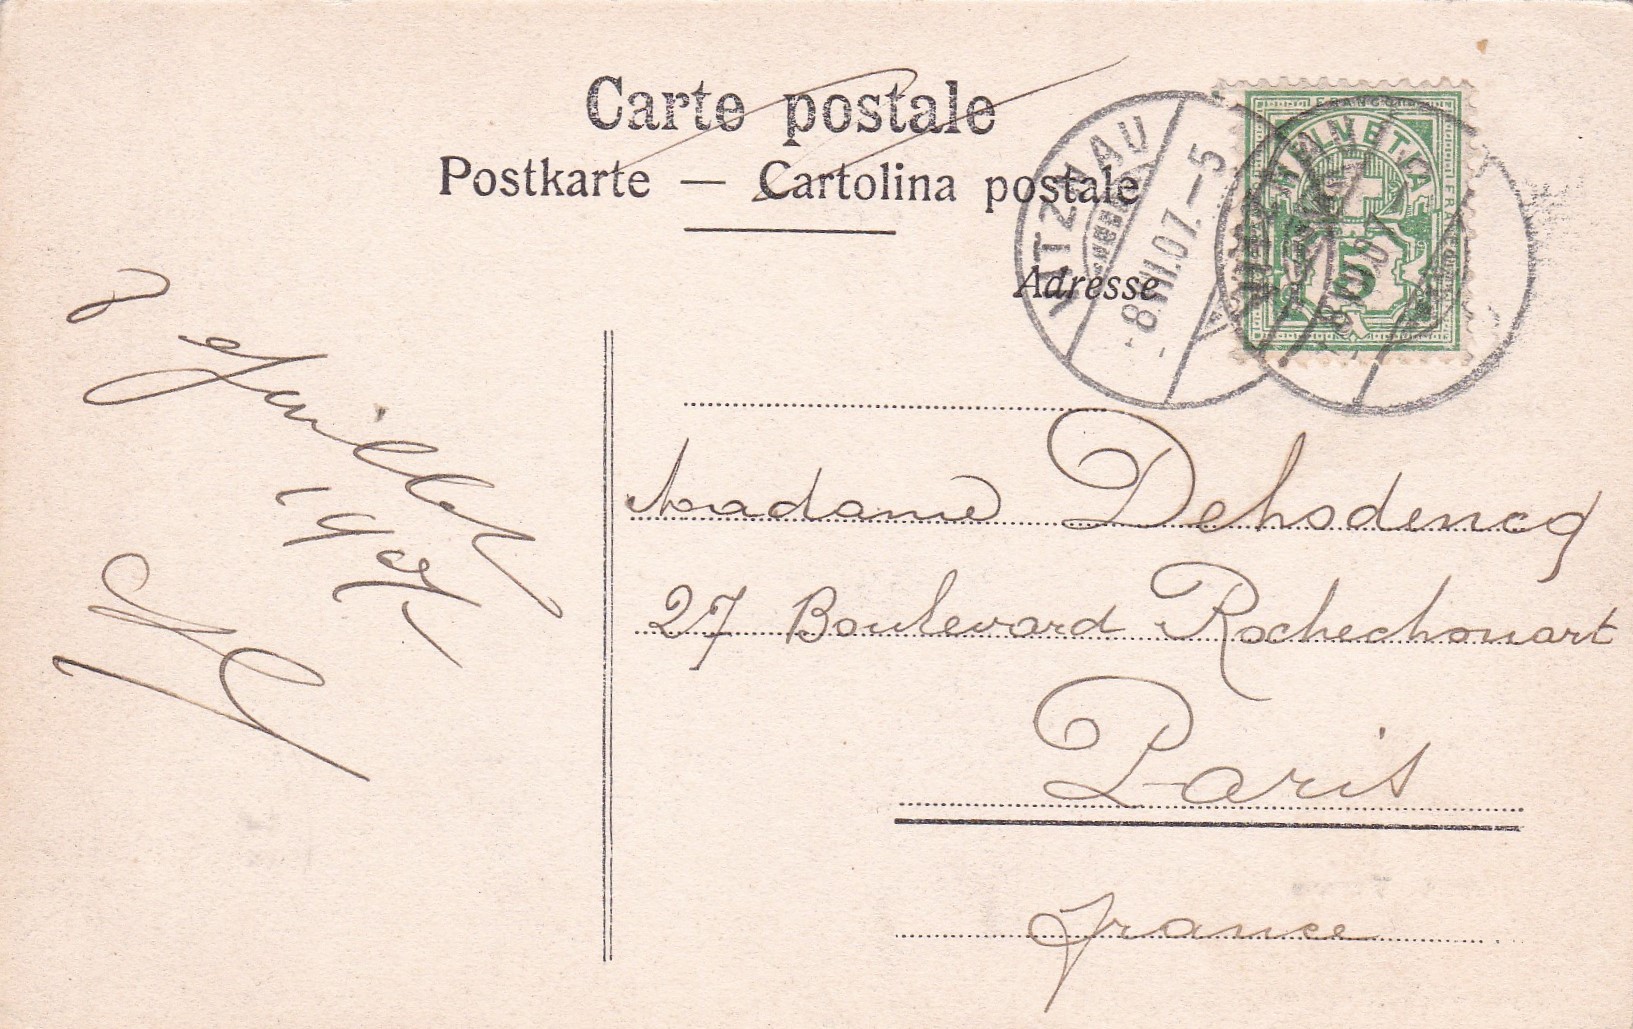 Carte postale
Postkarte — Cartolina postale
Adresse
VITZNAU
-8.VII.07.-5
FRANCO
HELVETIA
5
Juillet
1907
Madame Dehodencq
27 Boulevard Rochechouart
Paris
france